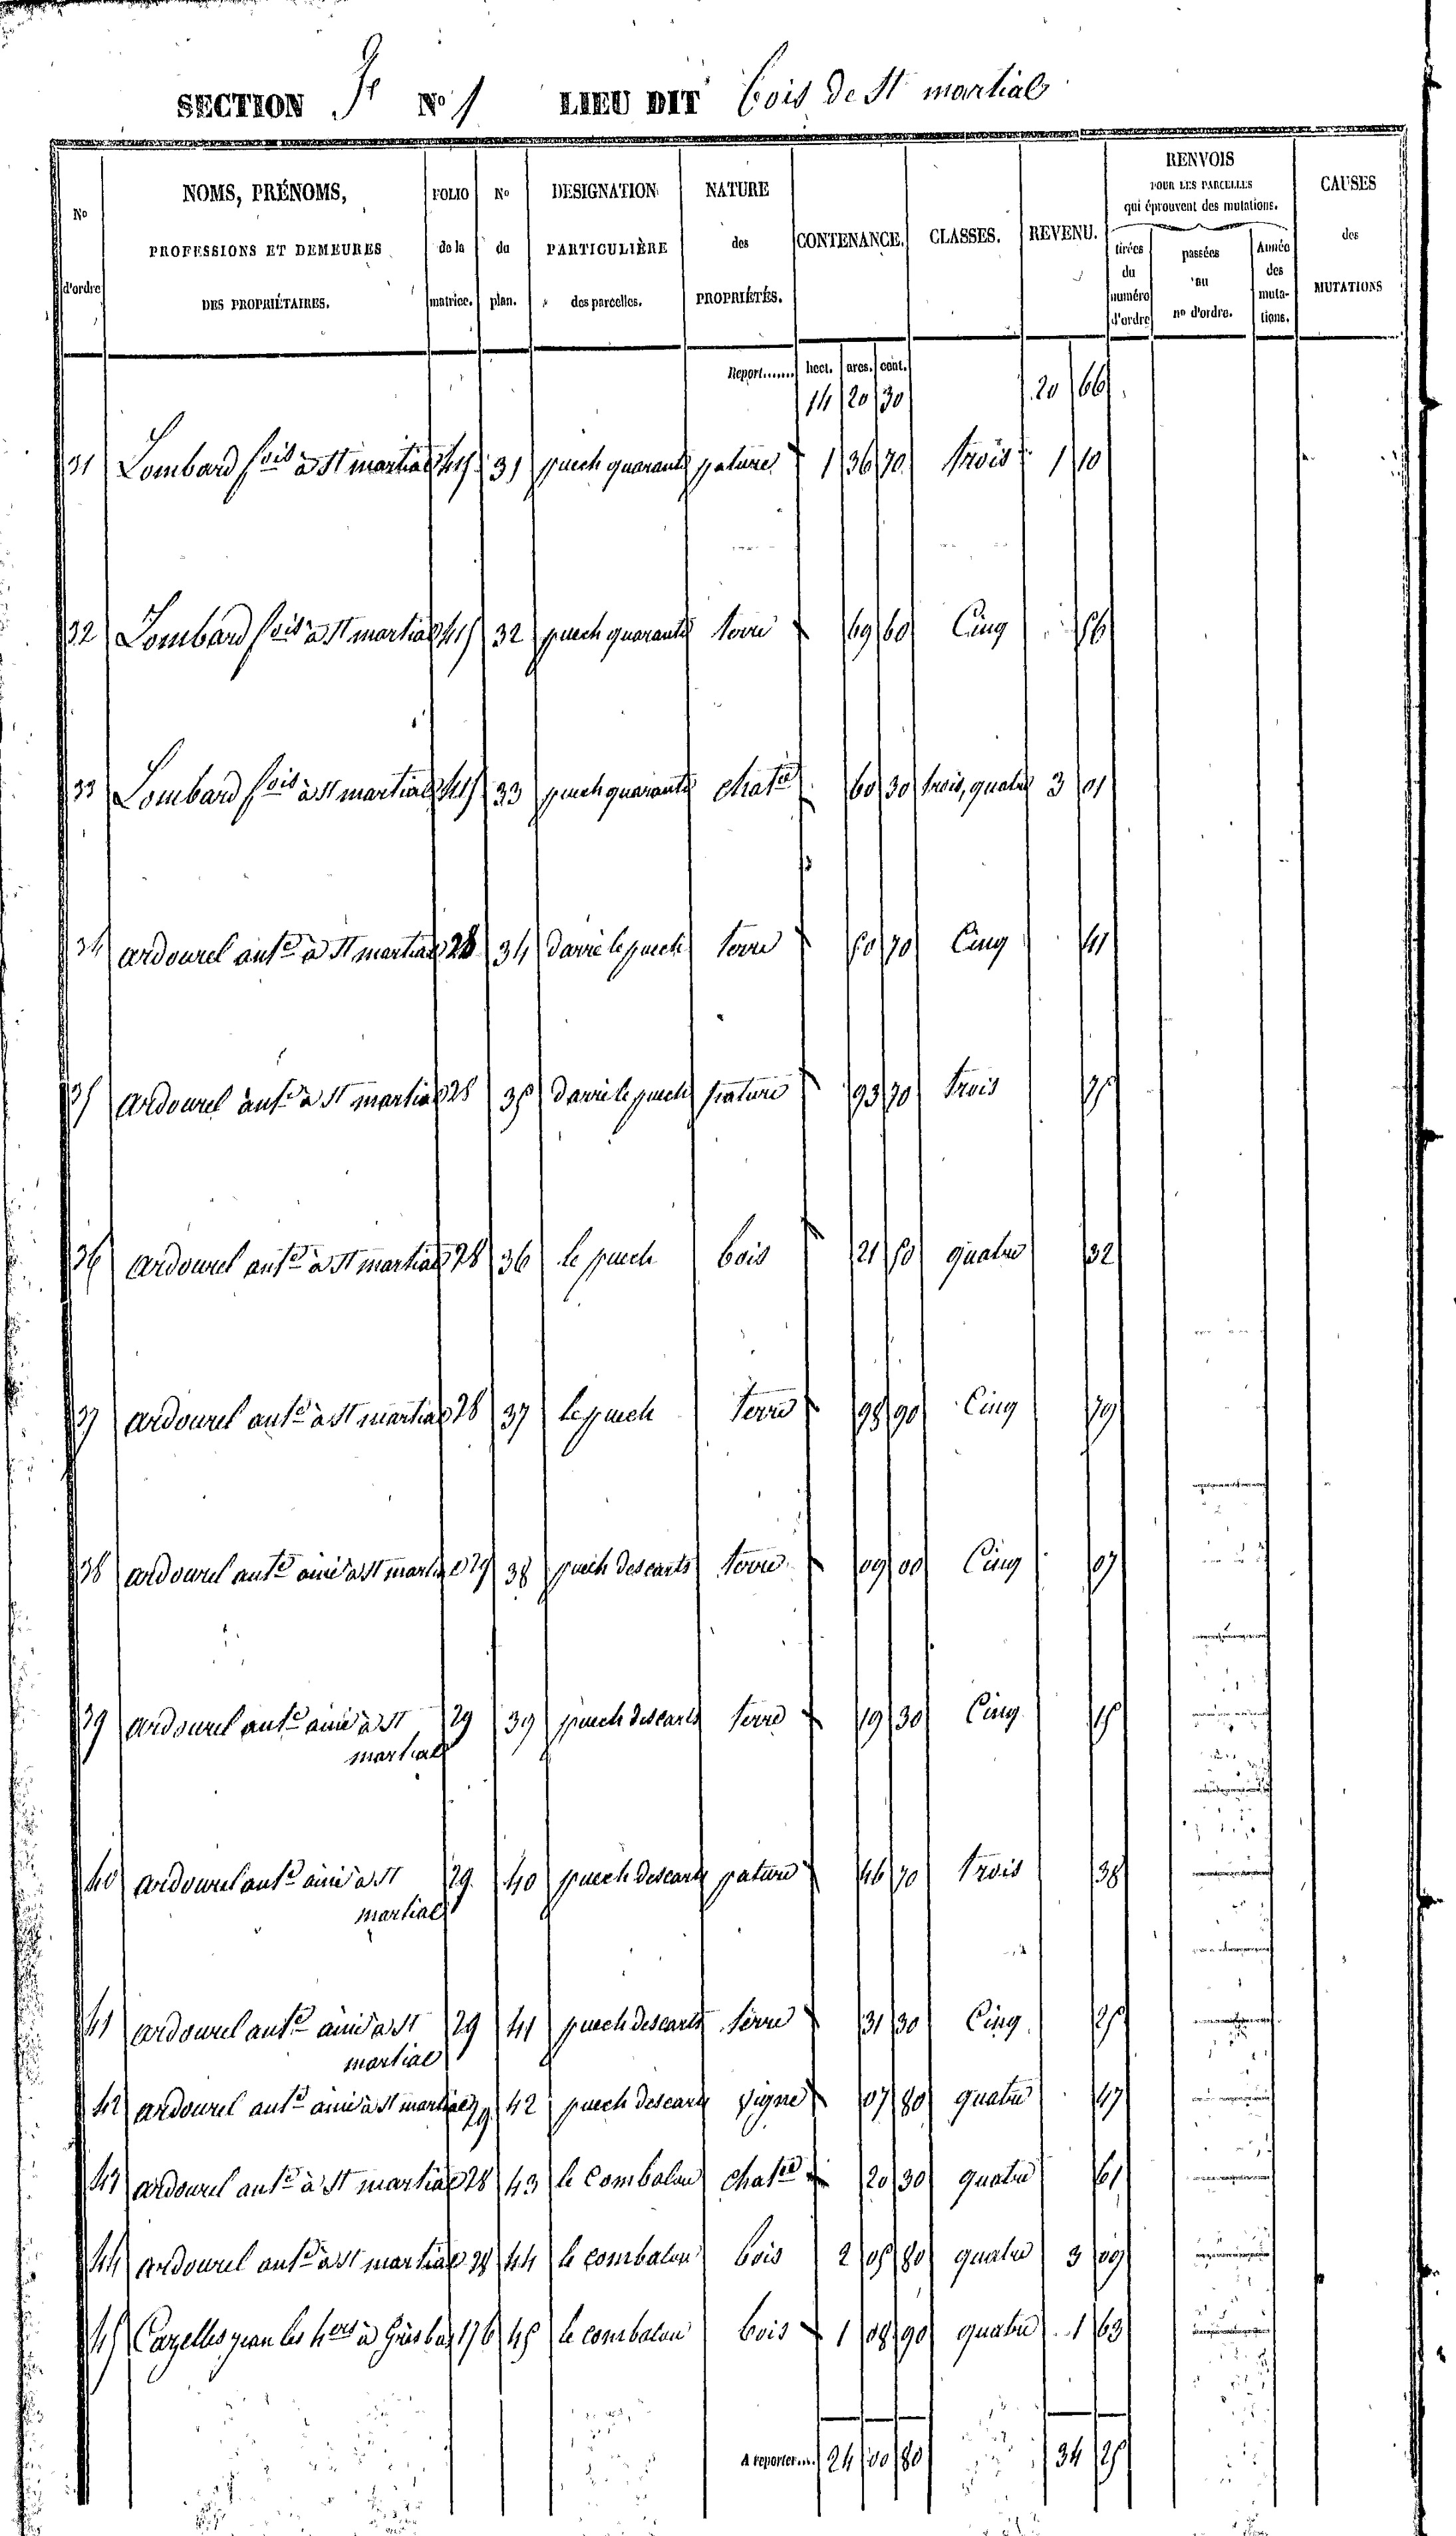 SECTION Je N° 1 LIEU DIT bois de St martial
N° d'ordre
NOMS, PRÉNOMS,
PROFESSIONS ET DEMEURES
DES PROPRIÉTAIRES.
FOLIO
de la
matrice.
N°
du
plan.
DESIGNATION
PARTICULIÈRE
des parcelles.
NATURE
des
PROPRIÉTÉS.
CONTENANCE.
CLASSES.
REVENU.
RENVOIS
POUR LES PARCELLES
qui éprouvent des mutations.
tirées
du
numéro
d'ordre
passées
au
n° d'ordre.
Année
des
muta-
tions.
CAUSES
des
MUTATIONS
Report....... hect. ares. cent.
14 20 30 20 66
31 Lombard fois à St martial 415 31 puech quaranté pature 1 36 70 trois 1 10
32 Lombard fois à St martial 415 32 puech quaranté terre 69 60 Cinq 56
33 Lombard fois à St martial 415 33 puech quaranté chatie 60 30 trois, quatre 3 01
34 ardourel ante à St martial 28 34 darrè le puech terre 50 70 Cinq 41
35 ardourel ante à St martial 28 35 darrè le puech pature 93 70 trois 75
36 ardourel ante à St martial 28 36 le puech bois 21 50 quatre 32
37 ardourel ante à St martial 28 37 le puech terre 98 90 Cinq 79
38 ardourel ante ainé à St martial 29 38 puech descarts terre 09 00 Cinq 07
39 ardourel ante ainé à St 29 39 puech descarts terre 19 30 Cinq 15
martial
40 ardourel ante ainé à St 29 40 puech descarts pature 46 70 trois 38
martial
41 ardourel ante ainé à St 29 41 puech descarts terre 31 30 Cinq 25
martial
42 ardourel ante ainé à St martial 29 42 puech descarts vigne 07 80 quatre 47
43 ardourel ante à St martial 28 43 le combalou chatie 20 30 quatre 61
44 ardourel ante à St martial 28 44 le combalou bois 2 05 80 quatre 3 09
45 Cazelles jean les hers à Gieusbas 176 45 le combalou bois 1 08 90 quatre 1 63
A reporter.... 24 00 80 34 25